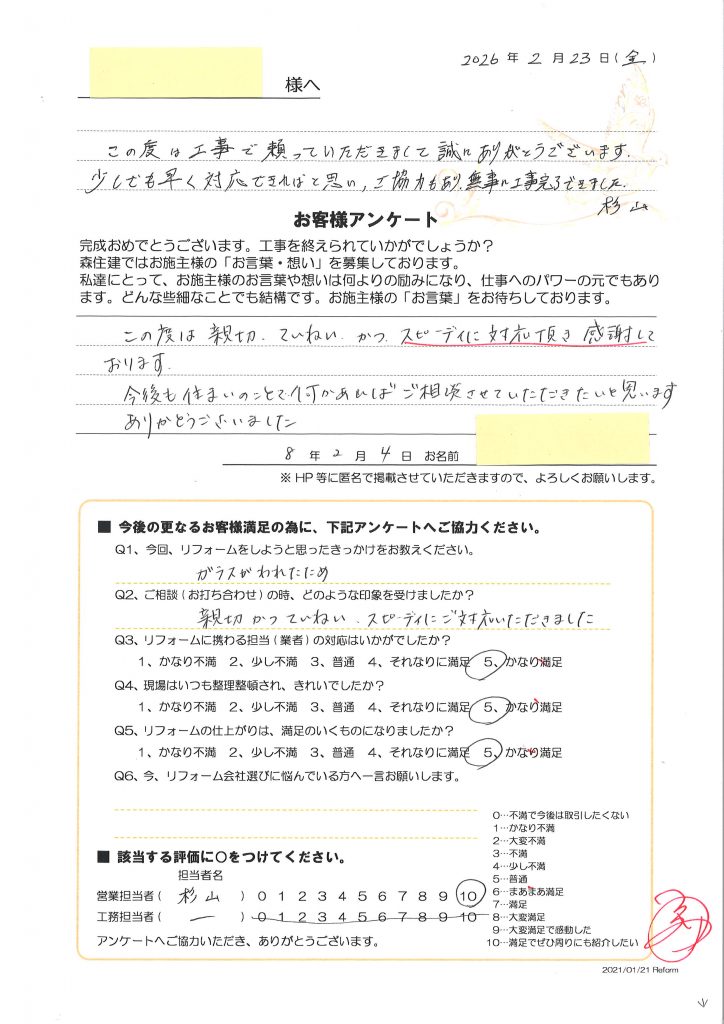 2026年2月23日(金)
様へ
この度は工事で頼っていただきまして誠にありがとうございます.
少しでも早く対応できればと思い、ご協力もあり、無事に工事完了できました.
杉山
お客様アンケート
完成おめでとうございます。工事を終えられていかがでしょうか?
森住建ではお施主様の「お言葉・想い」を募集しております。
私達にとって、お施主様のお言葉や想いは何よりの励みになり、仕事へのパワーの元でもあり
ます。どんな些細なことでも結構です。お施主様の「お言葉」をお待ちしております。
この度は親切、ていねい、かつ、スピーディに対応頂き感謝して
おります.
今後も住まいのことで何かあればご相談させていただきたいと思います
ありがとうございました
8年2月4日 お名前
※HP等に匿名で掲載させていただきますので、よろしくお願いします。
■ 今後の更なるお客様満足の為に、下記アンケートへご協力ください。
Q1、今回、リフォームをしようと思ったきっかけをお教えください。
ガラスがわれたため
Q2、ご相談(お打ち合わせ)の時、どのような印象を受けましたか?
親切かつていねい、スピーディにご対応いただきました
Q3、リフォームに携わる担当(業者)の対応はいかがでしたか?
1、かなり不満 2、少し不満 3、普通 4、それなりに満足 5、かなり満足
Q4、現場はいつも整理整頓され、きれいでしたか?
1、かなり不満 2、少し不満 3、普通 4、それなりに満足 5、かなり満足
Q5、リフォームの仕上がりは、満足のいくものになりましたか?
1、かなり不満 2、少し不満 3、普通 4、それなりに満足 5、かなり満足
Q6、今、リフォーム会社選びに悩んでいる方へ一言お願いします。
■ 該当する評価に○をつけてください。
担当者名
営業担当者(杉山) 0 1 2 3 4 5 6 7 8 9 10
工務担当者(ー) 0 1 2 3 4 5 6 7 8 9 10
アンケートへご協力いただき、ありがとうございます。
0…不満で今後は取引したくない
1…かなり不満
2…大変不満
3…不満
4…少し不満
5…普通
6…まあまあ満足
7…満足
8…大変満足
9…大変満足で感動した
10…満足でぜひ周りにも紹介したい
2021/01/21 Reform